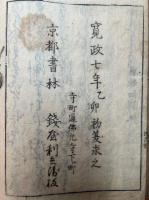 寛政七年乙卯初夏求之
寺町通佛光寺下ル町
京都書林 錢屋利兵衛版